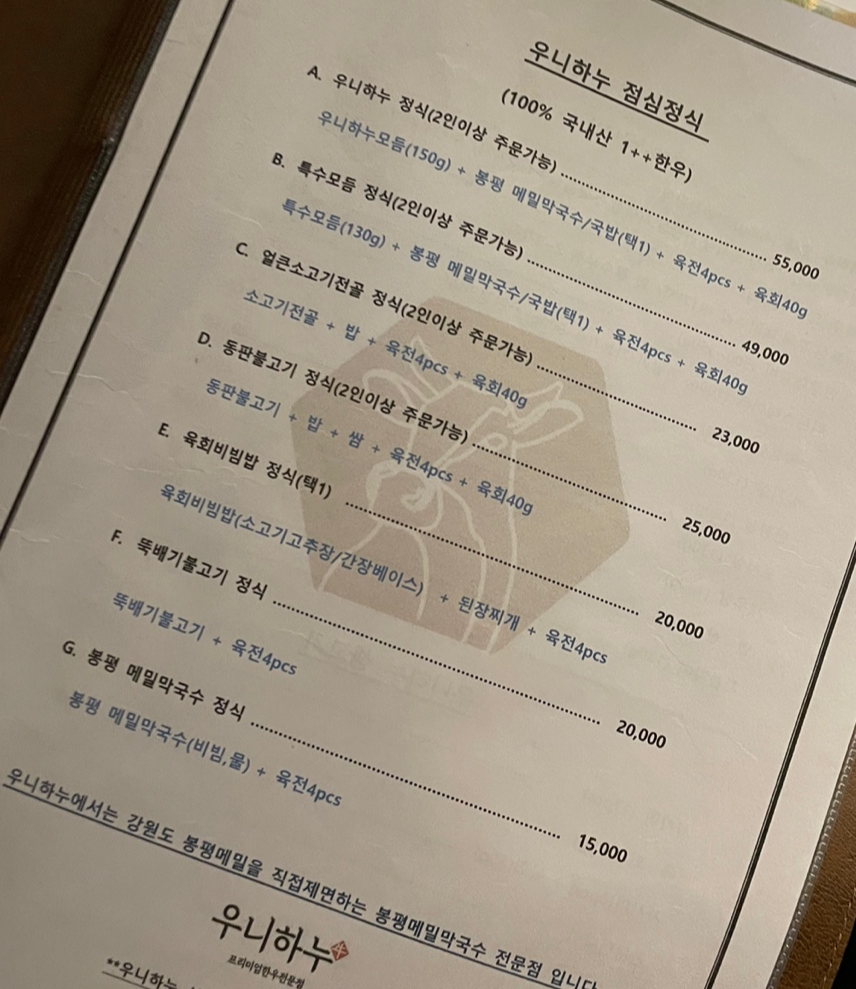 우니하누 점심정식
(100% 국내산 1++한우)
A. 우니하누 정식(2인이상 주문가능) 55,000
우니하누모듬(150g) + 봉평 메밀막국수/국밥(택1) + 육전4pcs + 육회40g
B. 특수모듬 정식(2인이상 주문가능) 49,000
특수모듬(130g) + 봉평 메밀막국수/국밥(택1) + 육전4pcs + 육회40g
C. 얼큰소고기전골 정식(2인이상 주문가능) 23,000
소고기전골 + 밥 + 육전4pcs + 육회40g
D. 동판불고기 정식(2인이상 주문가능) 25,000
동판불고기 + 밥 + 쌈 + 육전4pcs + 육회40g
E. 육회비빔밥 정식(택1) 20,000
육회비빔밥(소고기고추장/간장베이스) + 된장찌개 + 육전4pcs
F. 뚝배기불고기 정식 20,000
뚝배기불고기 + 육전4pcs
G. 봉평 메밀막국수 정식 15,000
봉평 메밀막국수(비빔,물) + 육전4pcs
우니하누에서는 강원도 봉평메밀을 직접제면하는 봉평메밀막국수 전문점 입니다
우니하누
프리미엄한우전문점
**우니하누